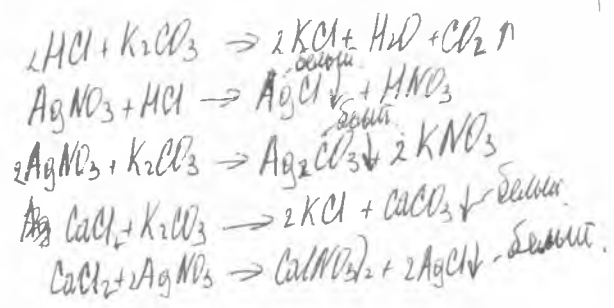 2HCl + K₂CO₃ → 2KCl + H₂O + CO₂↑
AgNO₃ + HCl → AgCl↓ белый + HNO₃
2AgNO₃ + K₂CO₃ → Ag₂CO₃↓ белый + 2KNO₃
CaCl₂ + K₂CO₃ → 2KCl + CaCO₃↓ - белый.
CaCl₂ + 2AgNO₃ → Ca(NO₃)₂ + 2AgCl↓ - белый.